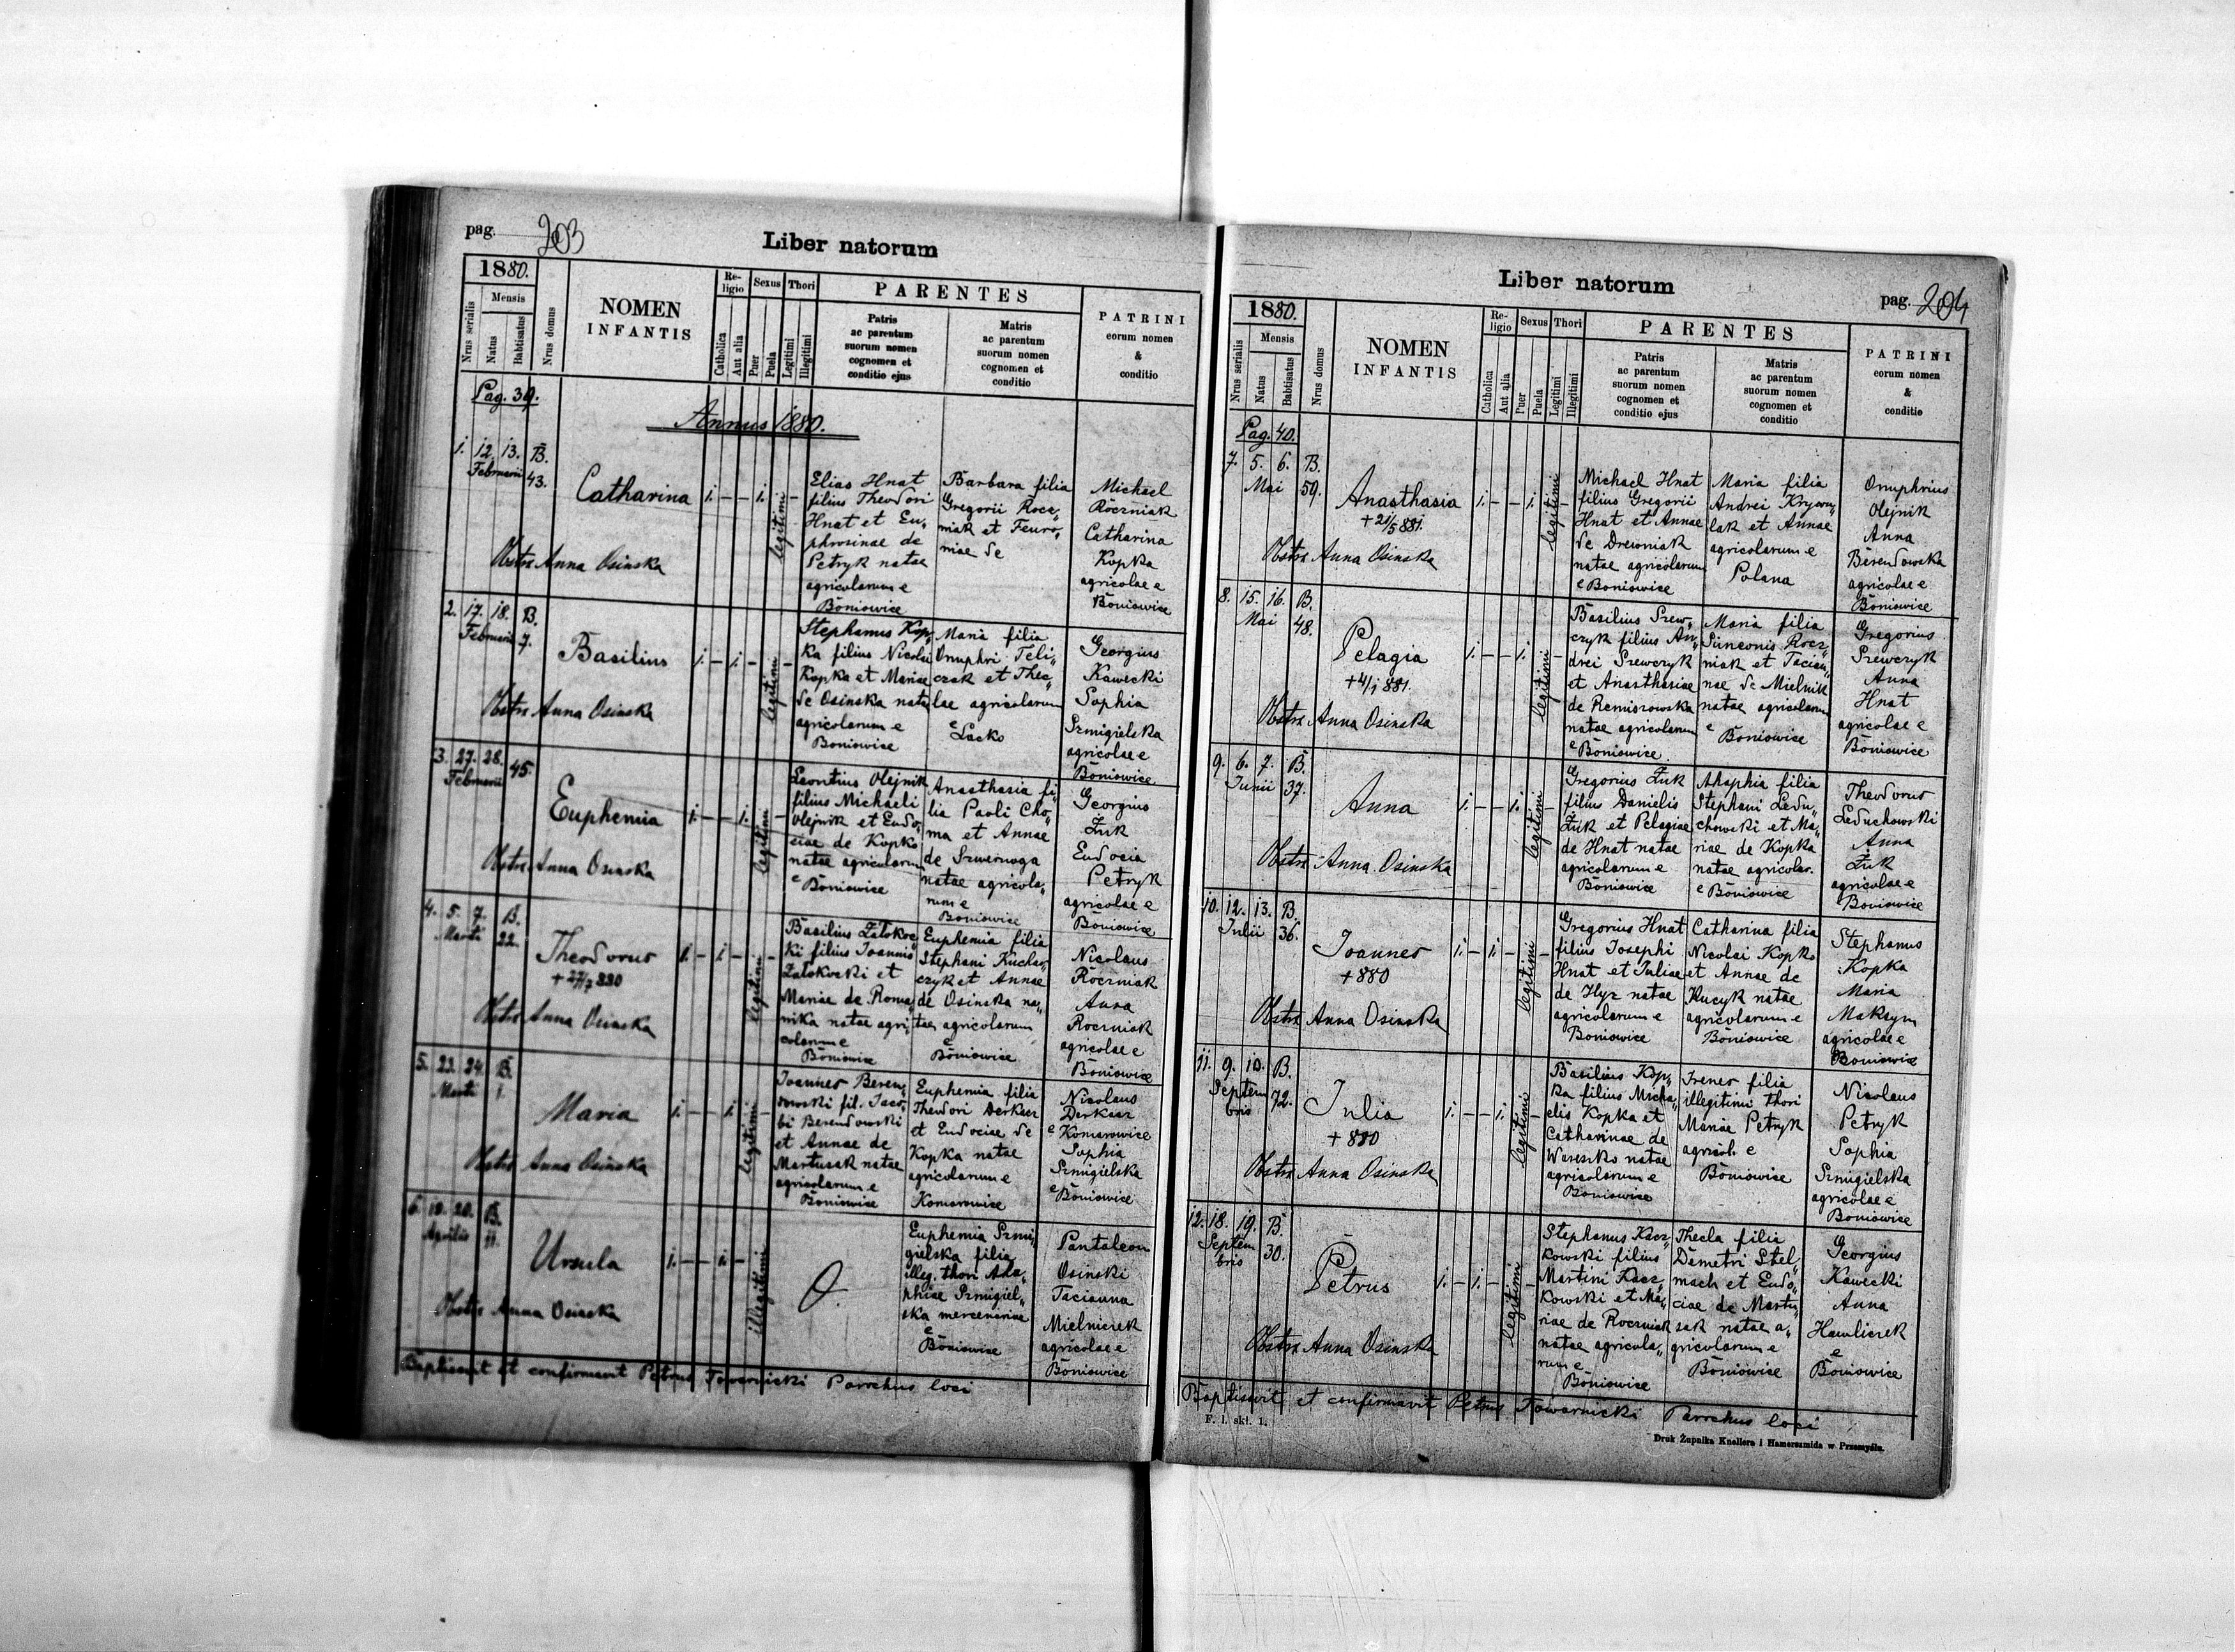 pag. 203
Liber natorum
1880.
Nrus serialis
Mensis
Natus
Babtisatus
Nrus domus
NOMEN
INFANTIS
Re-
ligio
Catholica
Aut alia
Sexus
Puer
Puela
Thori
Legitimi
Illegitimi
PARENTES
Patris
ac parentum
suorum nomen
cognomen et
conditio ejus
Matris
ac parentum
suorum nomen
cognomen et
conditio
PATRINI
eorum nomen
&
conditio
Pag. 39.
Annus 1880.
1. 12. 13. B.
Februarii 43.
Catharina 1. – – 1. legitimi –
Obstx Anna Osinska
Elias Hnat
filius Theodori
Hnat et Eu„
phrosinae de
Petryk natae
agricolarum e
Boniowice
Barbara filia
Gregorii Rocz„
niak et Feuro„
niae de
Michael
Roczniak
Catharina
Kopka
agricolae e
Boniowice
2. 17. 18. B.
Februarii 7.
Basilius 1. – 1. – legitimi –
Obstx Anna Osinska
Stephanus Kop„
ka filius Nicolai
Kopka et Mariae
de Osinska natae
agricolarum e
Boniowice
Maria filia
Onuphri Teli„
czak et Thec„
lae agricolarum
e
Lacko
Georgius
Kawecki
Sophia
Szmigielska
agricolae e
Boniowice
3. 27. 28. 45.
Februarii
Euphemia 1. – – 1. legitimi –
Obstx Anna Osinska
Leontius Olejnik
filius Michaeli
Olejnik et Eudo„
ciae de Kopko
natae agricolarum
e Boniowice
Anasthasia fi„
lia Paoli Cho„
ma et Annae
de Szwernoga
natae agricola„
rum e
Boniowice
Georgius
Żuk
Eudocia
Petryk
agricolae e
Boniowice
4. 5. 7. B.
Marti 22.
Theodorus 1. – 1. – legitimi –
+ 27/7 880
Obstx Anna Osinska
Basilius Zatokoc
ki filius Joannis
Zatokocki et
Mariae de Roma„
nika natae agri„
colarum e
Boniowice
Euphemia filia
Stephani Kuchar„
czyk et Annae
de Osinska na„
tae agricolarum
e
Boniowice
Nicolaus
Roczniak
Anna
Roczniak
agricolae e
Boniowice
5. 23. 24. B.
Marti 1.
Maria 1. – – 1. legitimi –
Obstx Anna Osinska
Joannes Beren„
dowski fil. Jaco„
bi Berendowski
et Annae de
Martusak natae
agricolarum e
Boniowice
Euphemia filia
Theodori Derkacz
et Eudociae de
Kopka natae
agricolarum e
Komarowice
Nicolaus
Derkacz
e Komarowice
Sophia
Szmigielska
e Boniowice
6. 19. 20. B.
Aprilis 11.
Ursula 1. – – 1. – illegitimi
Obstx Anna Osinska
O.
Euphemia Szmi„
gielska filia
illeg. thori Aha„
phiae Szmigiel„
ska mercenariae
e
Boniowice
Pantaleon
Osinski
Tacianna
Mielniczek
agricolae e
Boniowice
Baptisavit et confirmavit Petrus Towarnicki Parrchus loci
Liber natorum
pag. 204
1880.
Nrus serialis
Mensis
Natus
Babtisatus
Nrus domus
NOMEN
INFANTIS
Re-
ligio
Catholica
Aut alia
Sexus
Puer
Puela
Thori
Legitimi
Illegitimi
PARENTES
Patris
ac parentum
suorum nomen
cognomen et
conditio ejus
Matris
ac parentum
suorum nomen
cognomen et
conditio
PATRINI
eorum nomen
&
conditio
Pag. 40.
7. 5. 6. B.
Mai 59.
Anasthasia 1. – – 1. legitimi –
+ 21/5 881.
Obstx Anna Osinska
Michael Hnat
filius Gregorii
Hnat et Annae
de Drewniak
natae agricolarum
e Boniowice
Maria filia
Andrei Krywu„
lak et Annae
agricolarum e
Polana
Onuphrius
Olejnik
Anna
Berendowska
agricolae e
Boniowice
8. 15. 16. B.
Mai 48.
Pelagia 1. – – 1. legitimi –
+ 4/1 881.
Obstx Anna Osinska
Basilius Szew„
czyk filius An„
drei Szewczyk
et Anasthasiae
de Remiszowska
natae agricolarum
e Boniowice
Maria filia
Simeonis Rocz„
niak et Tacian„
nae de Mielnik
natae agricolarum
e Boniowice
Gregorius
Szewczyk
Anna
Hnat
agricolae e
Boniowice
9. 6. 7. B.
Junii 37.
Anna 1. – – 1. legitimi –
Obstx Anna Osinska
Gregorius Żuk
filius Danielis
Żuk et Pelagiae
de Hnat natae
agricolarum e
Boniowice
Ahaphia filia
Stephani Ledu„
chowski et Ma„
riae de Kopka
natae agricolar.
e Boniowice
Theodorus
Leduchowski
Anna
Żuk
agricolae e
Boniowice
10. 12. 13. B.
Julii 36.
Joannes 1. – 1. – legitimi –
+ 880
Obstx Anna Osinska
Gregorius Hnat
filius Josephi
Hnat et Juliae
de Hyz natae
agricolarum e
Boniowice
Catharina filia
Nicolai Kopko
et Annae de
Kucyk natae
agricolarum e
Boniowice
Stephanus
Kopka
Maria
Maksym
agricolae e
Boniowice
11. 9. 10. B.
Septem 72.
bris
Julia 1. – – 1. legitimi –
+ 880
Obstx Anna Osinska
Basilius Kop„
ka filius Micha„
elis Kopka et
Catharinae de
Wereszko natae
agricolarum e
Boniowice
Irenes filia
illegitimi thori
Mariae Petryk
agricol. e
Boniowice
Nicolaus
Petryk
Sophia
Szmigielska
agricolae e
Boniowice
12. 18. 19. B.
Septem 30.
bris
Petrus 1. – 1. – legitimi –
Obstx Anna Osinska
Stephanus Kacz„
kowski filius
Martini Kacz„
kowski et Ma„
riae de Roczniak
natae agricola„
rum e
Boniowice
Thecla filia
Demetri Stel„
mach et Eudo„
ciae de Martu„
sak natae a„
gricolarum e
Boniowice
Georgius
Kawecki
Anna
Hawliczek
e
Boniowice
Baptisavit et confirmavit Petrus Towarnicki Parrchus loci
F. l. skt. 1.
Druk Żupnika Knollera i Hamerszmida w Przemyślu.